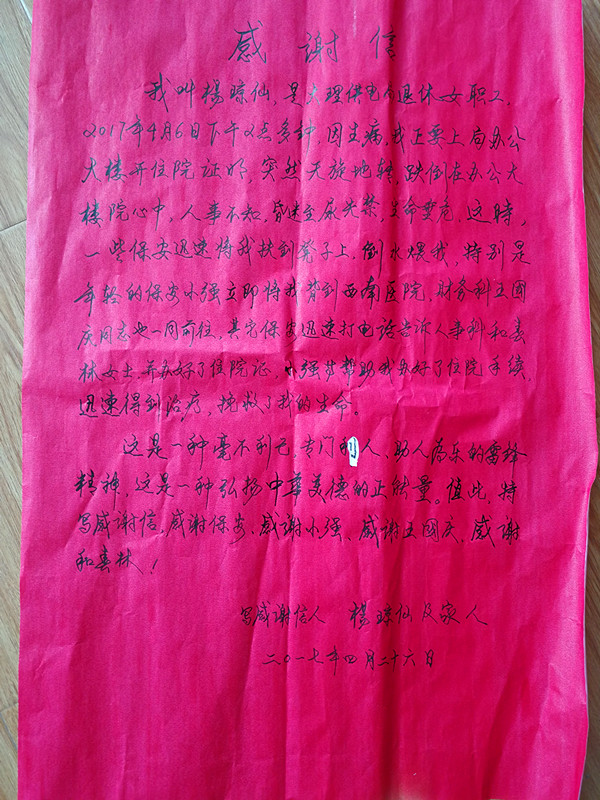 感谢信
我叫杨琼仙,是大理供电局退休女职工,
2017年4月6日下午2点多钟,因生病,我正要上局办公
大楼开住院证明,突然天旋地转,跌倒在办公大
楼院心中,人事不知,昏迷至尿失禁,生命垂危。这時,
一些保安迅速将我扶到凳子上,倒水煨我,特别是
年轻的保安小强立即将我背到西南医院,财务科王國
庆同志也一同前往,其它保安迅速打电话告诉人事科和春
林女士,并办好了住院证,小强帮助我办好了住院手续,
迅速得到治疗,挽救了我的生命。
这是一种毫不利己,专门利人、助人为乐的雷锋
精神,这是一种弘扬中華美德的正能量。值此,特
写感谢信,感谢保安、感谢小强、感谢王國庆、感谢
和春林!
写感谢信人 杨琼仙及家人
二〇一七年四月二十六日